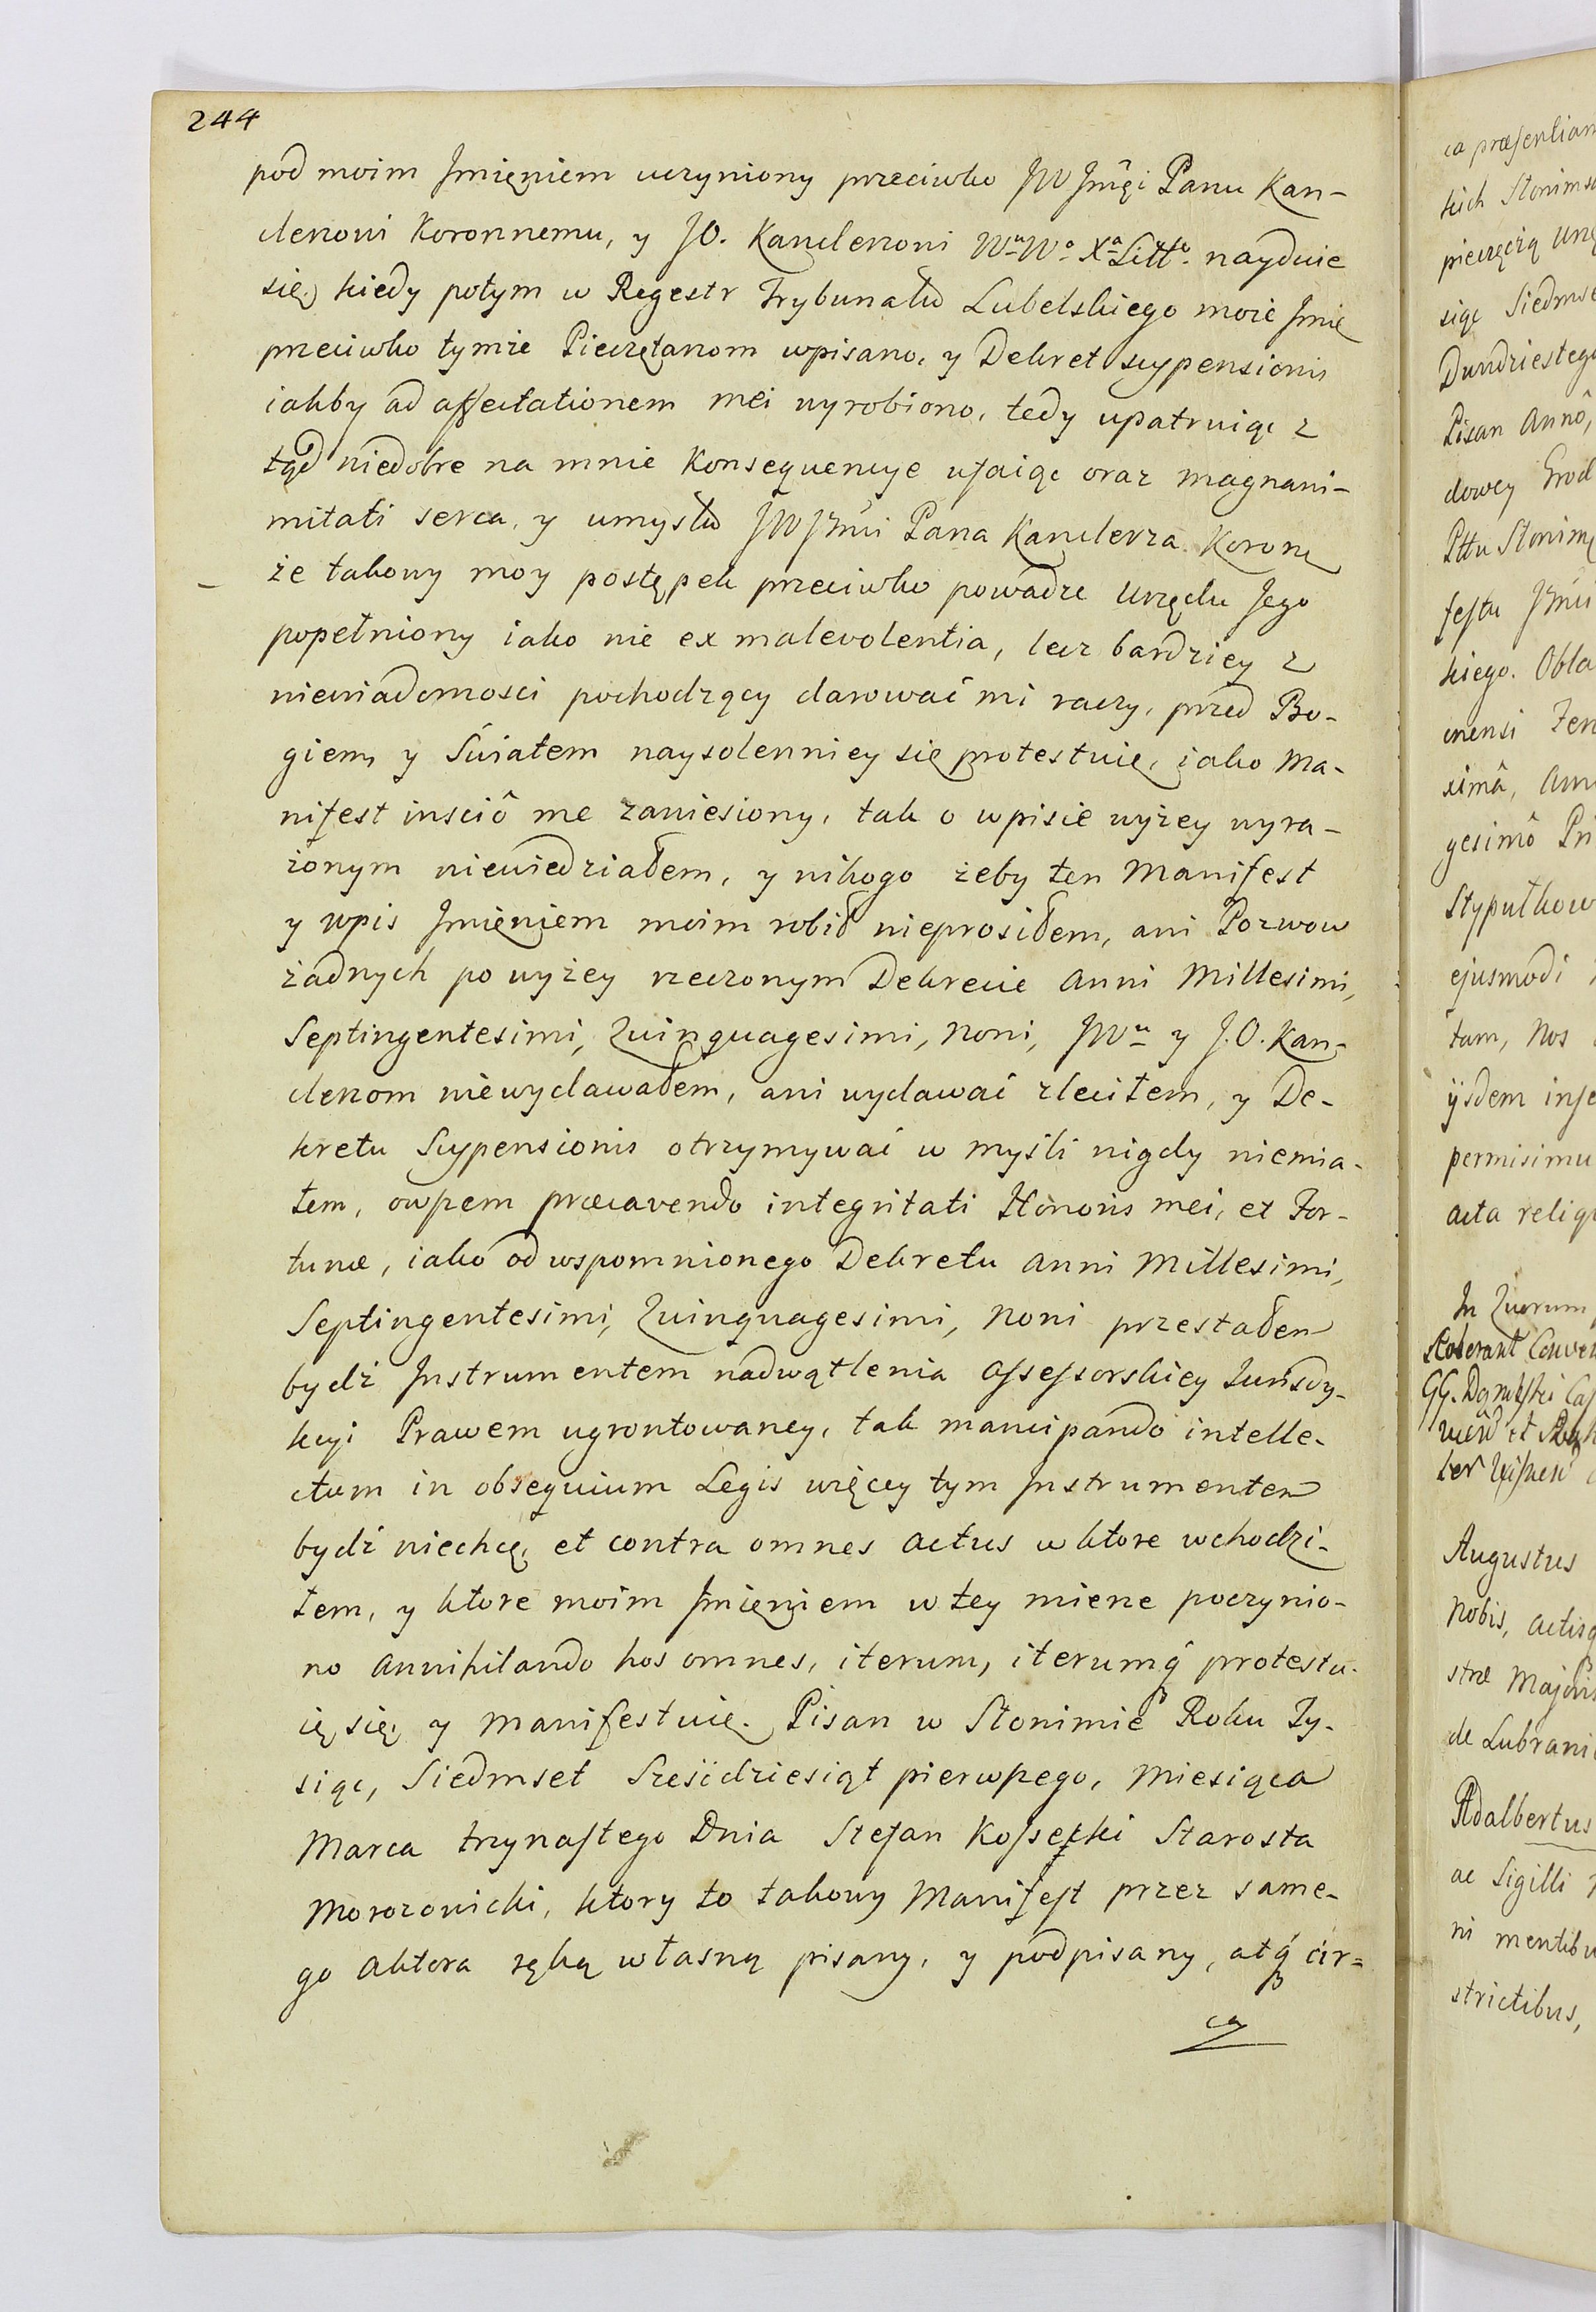 244
pod moim Jmięniem uczyniony przeciwko JW Jmęi Panu Kan-
clerzowi Koronnemu, y JO. Kanclerzowi Wu Wo Xa Litto. nayduie
się, kiedy potym w Regestr Trybunału Lubelskiego moie Jmie
przeciwko tymże Pieczętarzom wpisano, y Dekret suspensionis
iakby ad affectationem mei wyrobiono, tedy upatruiąc z
tąd niedobre na mnie Konsequencye ufaiąc oraz magnani-
mitati serca, y umysłu JW Jmci Pana Kanclerza Koronę
że takowy moy postępek przeciwko powadze Urzędu Jego
popełniony iako nie ex malevolentia, lecz bardziey z
niewiadomosci pochodzący darować mi raczy, przed Bo-
giem, y Światem naysolenniey się protestuię, iako Ma-
nifest insciô me zaniesiony, tak o wpisie wyżey wyra-
żonym niewiedziałem, y nikogo żeby ten Manifest
y wpis Jmięniem moim robił nieprosiłem, ani Pozwow
żadnych po wyżey rzeczonym Dekrecie Anni Millesimi,
Septingentesimi, Quinquagesimi, Noni, JWu y J.O. Kan-
clerzom niewydawałem, ani wydawać zleciłem, y De-
kretu Suspensionis otrzymywać w myśli nigdy niemia-
łem, owszem præcavendo integritati Honoris mei, et For-
tunæ, iako od wspomnionego Dekretu Anni Millesimi,
Septingentesimi, Quinquagesimi, Noni przestałem
bydź Jnstrumentem nadwątlenia Assessorskiey Jurisdy-
kcyi Prawem ugrontowaney, tak mancipando intelle-
ctum in obsequium Legis więcey tym Jnstrumentem
bydź niechcę, et contra omnes actus w ktore wchodzi-
łem, y ktore moim Jmięniem w tey mierze poczynio-
no annihilando hos omnes, iterum, iterumq́ protestu-
ię się, y manifestuię. Pisan w Słonimie Roku Ty-
siąc, Siedmset Sześćdziesiąt pierwszego, Miesiąca
Marca trzynastego Dnia Stefan Kossecki Starosta
Morozowicki, ktory to takowy Manifest przez same-
go aktora ręką własną pisany, y podpisany, atq́ cir=
ca
ca præsentiam
kich Słonimsk
pieczęcią Urzę
siąc Siedmse
Dwudziestego
Pisan Annô,
dowey Grod
Pttu Słonims
festu Jmci
kiego. Obla
cnensi Fer
ximâ, Ann
gesimô Pri
Stypułkow
ejusmodi
tum, Nos
ijsdem inse
permisimu
acta relig
In Quorum
Augustus
Nobis, actisq
stræ Majoris
de Lubrani
Adalbertus
ac Sigilli
ni mentibu
strictibus,